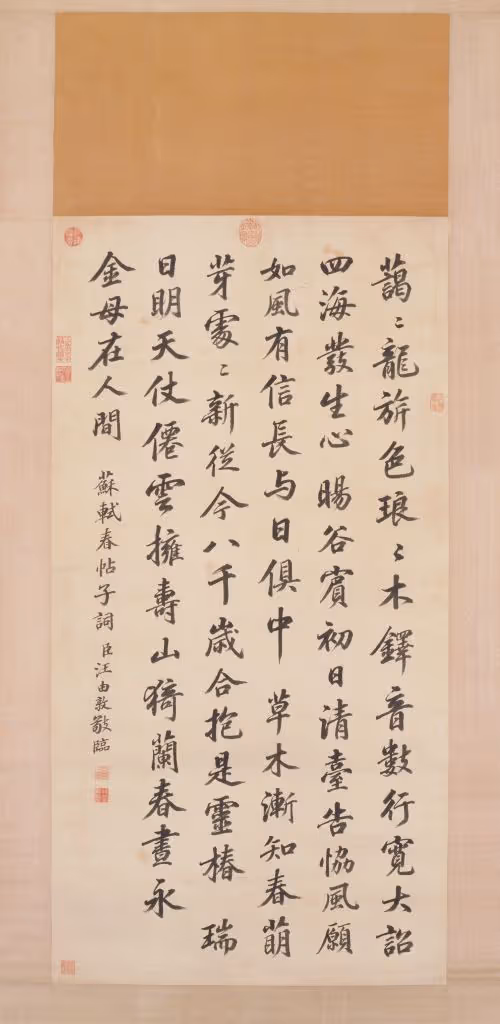 藹〻龍旂色琅〻木鐸音數行寬大詔
四海發生心暘谷賓初日清臺告協風願
如風有信長与日俱中 草木漸知春萌
芽處〻新從今八千歲合抱是靈椿 瑞
日明天仗僊雲擁壽山猗蘭春晝永
金母在人間 蘇軾春帖子詞 臣汪由敦敬臨